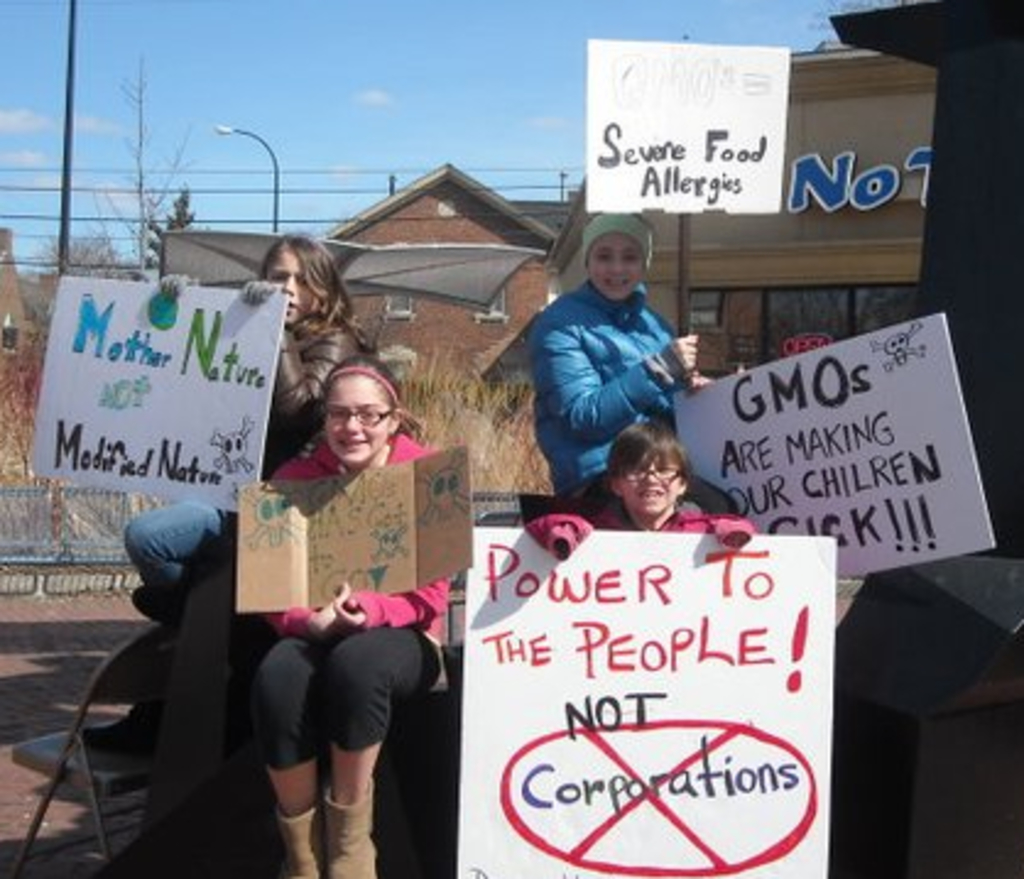 GMO's =
Severe Food
Allergies
No
Mother Nature
NOT
Modified Nature
GMOs
ARE MAKING
OUR CHILREN
SICK!!!
OPEN
to
GO
POWER TO
THE PEOPLE!
NOT
Corporations